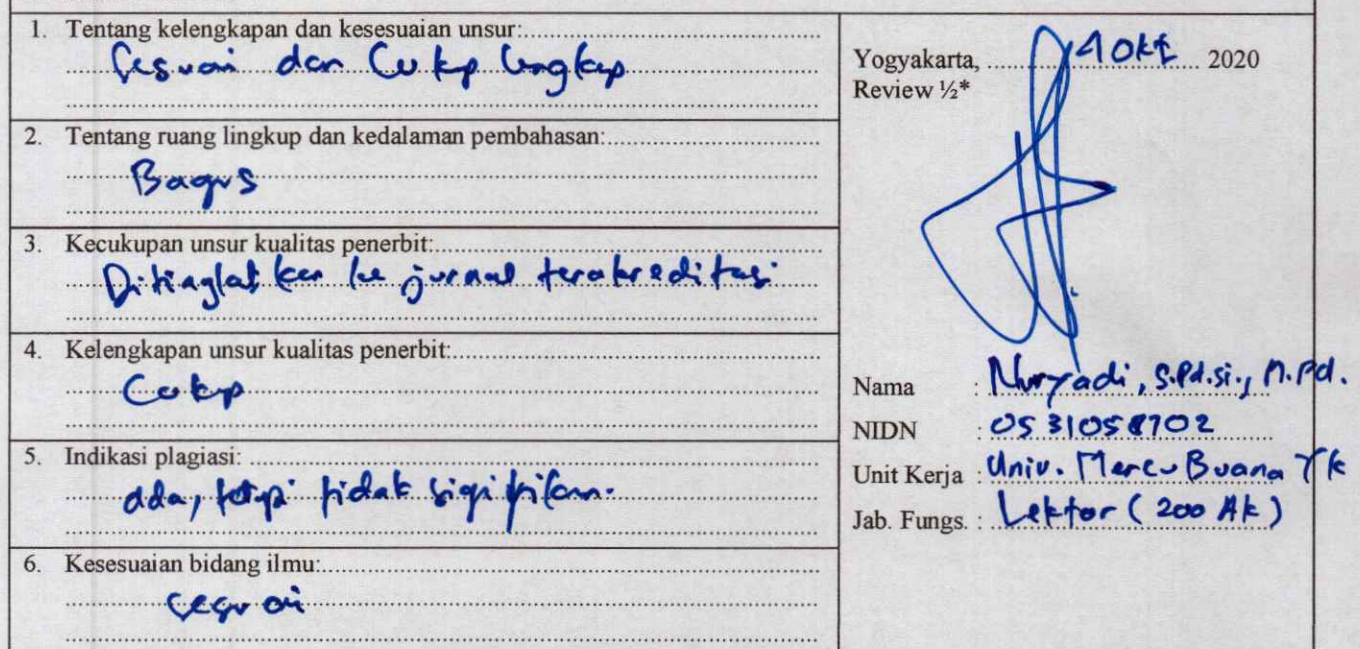 1. Tentang kelengkapan dan kesesuaian unsur:
Sesuai dan Cukup lengkap
2. Tentang ruang lingkup dan kedalaman pembahasan:
Bagus
3. Kecukupan unsur kualitas penerbit:
Ditingkatkan ke jurnal terakreditasi
4. Kelengkapan unsur kualitas penerbit:
Cukup
5. Indikasi plagiasi:
ada, tetapi tidak
6. Kesesuaian bidang ilmu:
sesuai
Yogyakarta, Okt 2020
Review ½*
Nama : Nuryadi, S.Pd.Si., M.Pd.
NIDN : 0531058702
Unit Kerja : Univ. Mercu Buana Yk
Jab. Fungs. : Lektor (200 Ak)